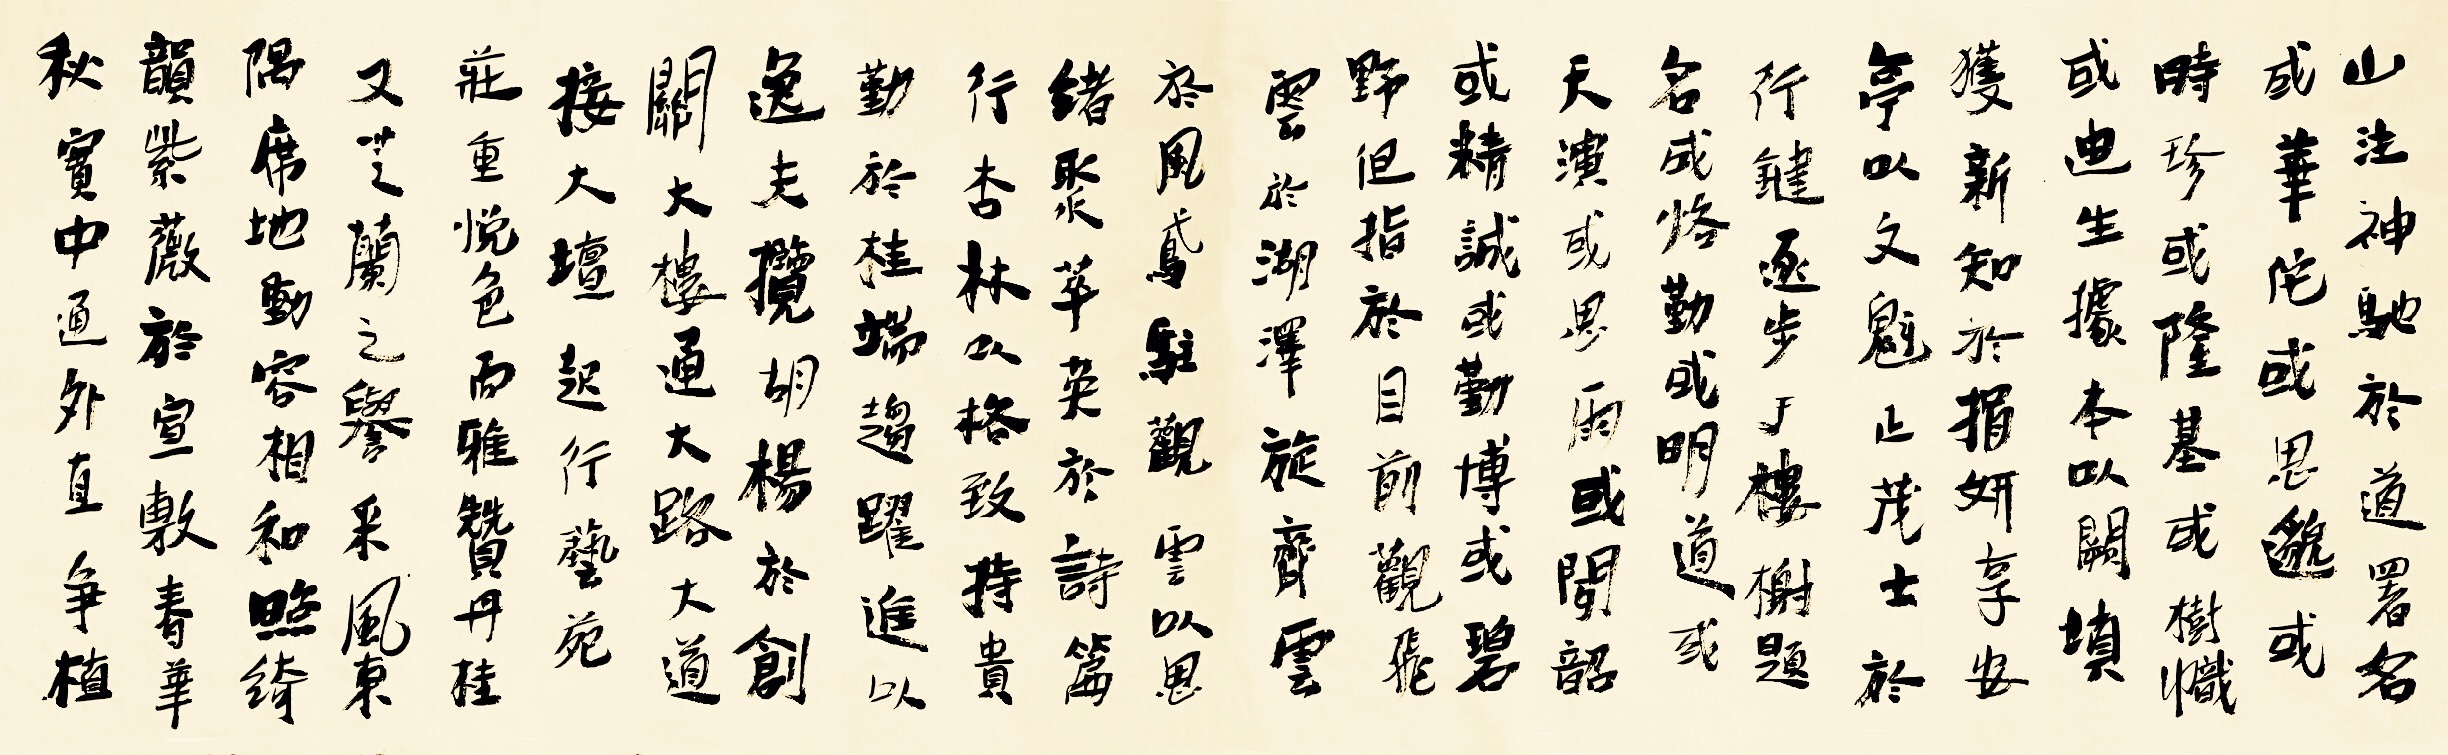 山法神馳於道署名
或華佗或思邈或
時珍或隆基或樹幟
或迪生據本以闢填
獲新知於捐妍享安
亭以文魁止茂士於
行鍵逐步于樓榭題
名或恪勤或明道或
天演或思雨或聞韶
或精誠或勤博或碧
野但指於目前觀飛
雲於湖澤旋齊雲
於風鳶駐觀雲以思
緒聚萃英於詩篇
行杏林以格致持貴
勤於桂端趨躍進以
逸夫攬胡楊於創
關大樓通大路大道
接大壇起行藝苑
莊重悦色而雅贊丹桂
又芝蘭之譽采風東
隅席地動容相和照綺
韻紫薇於宣敷春華
秋實中通外直爭植